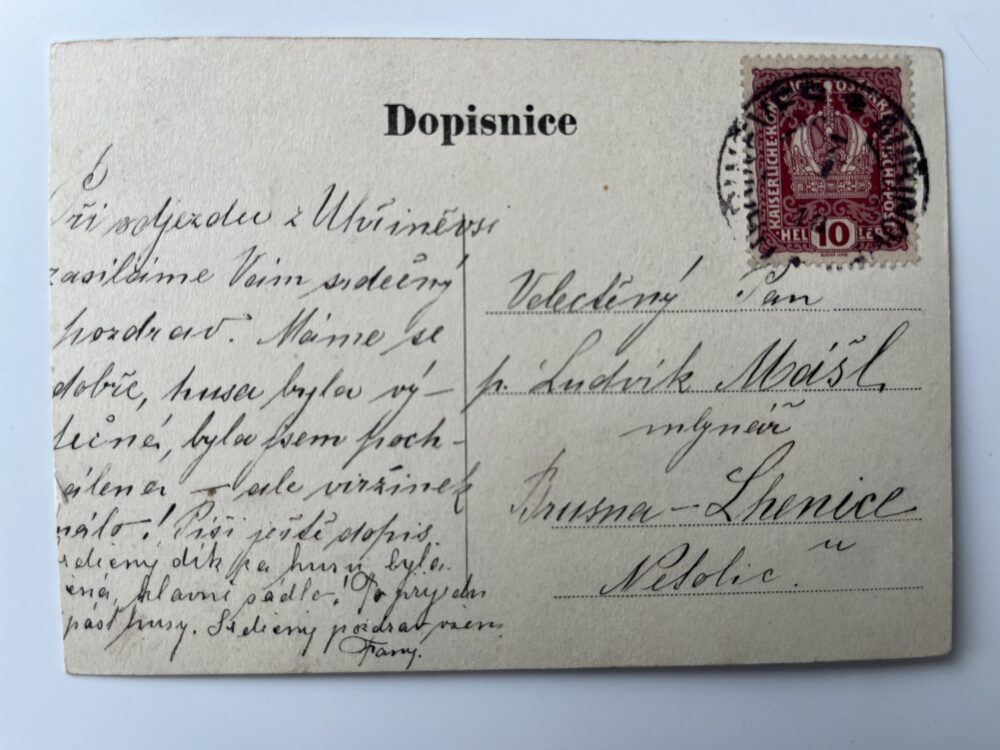 Dopisnice
KAISERLICHE KÖN
ÖSTERR
ISCHE POST
HEL 10 LER
18
Při odjezdu z Uhříněvsi
zasíláme Vám srdečný
pozdrav. Máme se
dobře, husa byla vý-
tečná, byla jsem poch-
álena – ale viržinek
málo! Píši ještě dopis.
Srdečný dík za husu, byla
hlavně sádlo!
husy. Srdečný pozdrav všem
Fany.
Velectěný Pan
p. Ludvík Mášl,
mlynář
Brusna – Lhenice
u
Netolic.